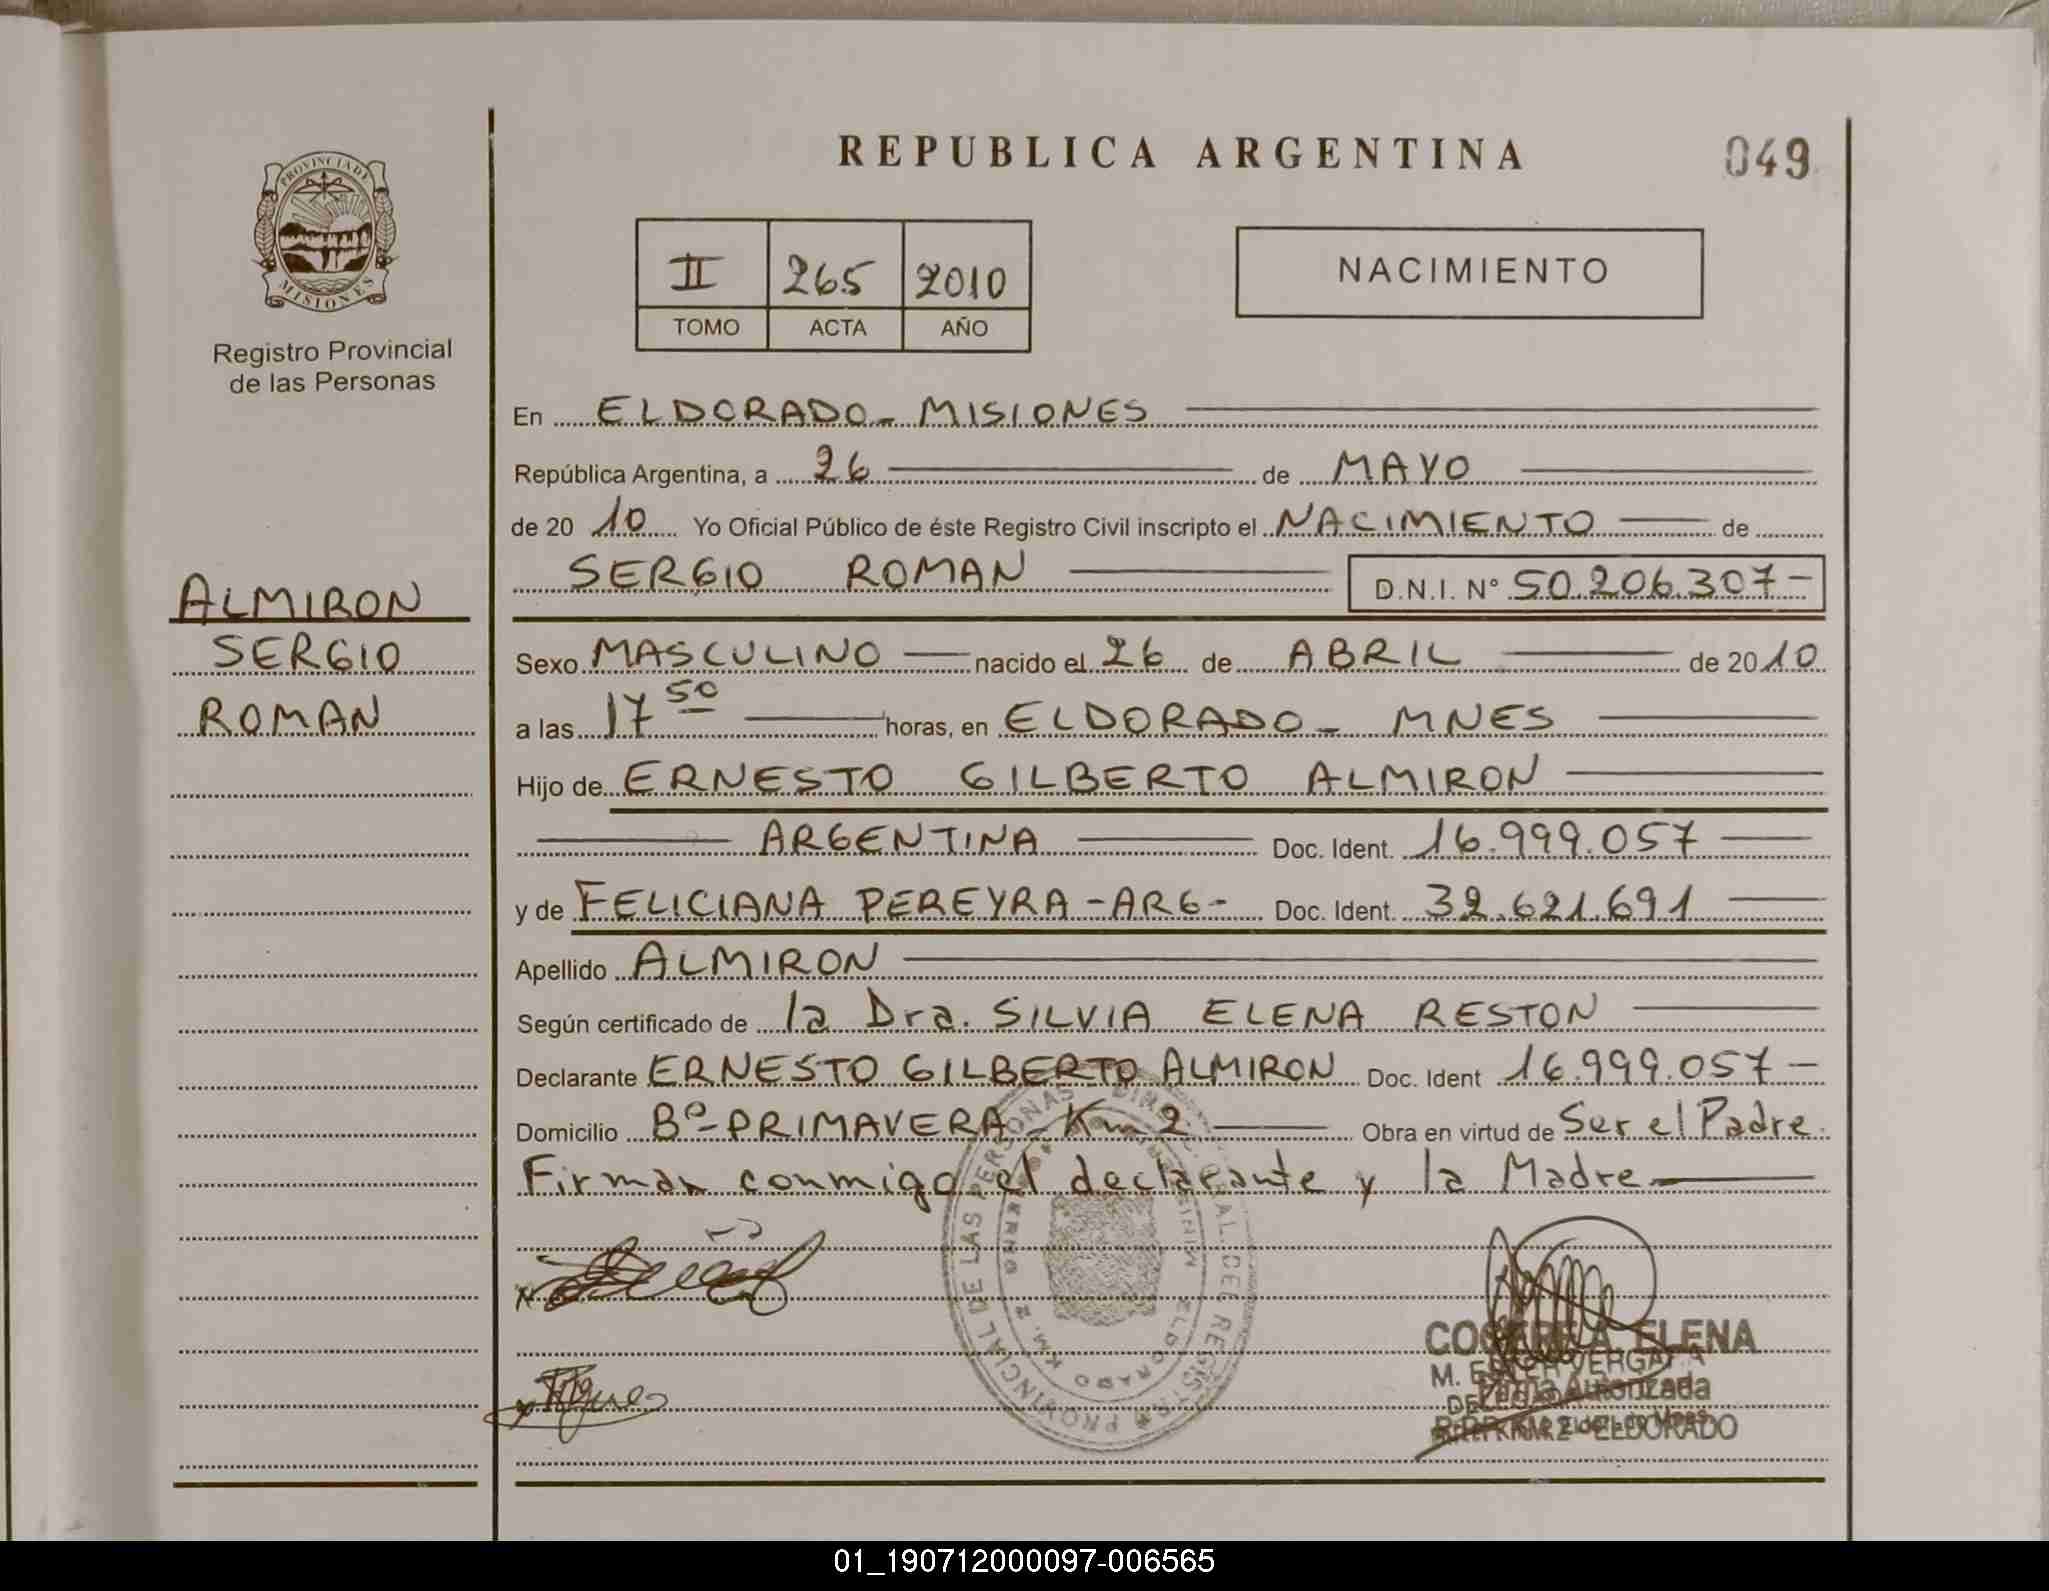 REPUBLICA ARGENTINA
049
PROVINCIA DE
MISIONES
Registro Provincial
de las Personas
II 265 2010
TOMO ACTA AÑO
NACIMIENTO
En ELDORADO - MISIONES
República Argentina, a 26 de MAYO
de 20 10 Yo Oficial Público de éste Registro Civil inscripto el NACIMIENTO de
SERGIO ROMAN D.N.I. N° 50.206.307-
ALMIRON
SERGIO
ROMAN
Sexo MASCULINO nacido el 26 de ABRIL de 2010
a las 17 50 horas, en ELDORADO - MNES
Hijo de ERNESTO GILBERTO ALMIRON
ARGENTINA Doc. Ident. 16.999.057
y de FELICIANA PEREYRA -ARG- Doc. Ident. 32.621.691
Apellido ALMIRON
Según certificado de la Dra. SILVIA ELENA RESTON
Declarante ERNESTO GILBERTO ALMIRON Doc. Ident 16.999.057-
Domicilio Bº- PRIMAVERA - Km 2 Obra en virtud de Ser el Padre.
Firman conmigo el declarante y la Madre
PROVINCIAL DE LAS PERSONAS
ELDORADO KM. 2
ELENA
Firma Autorizada
ELDORADO
01_190712000097-006565